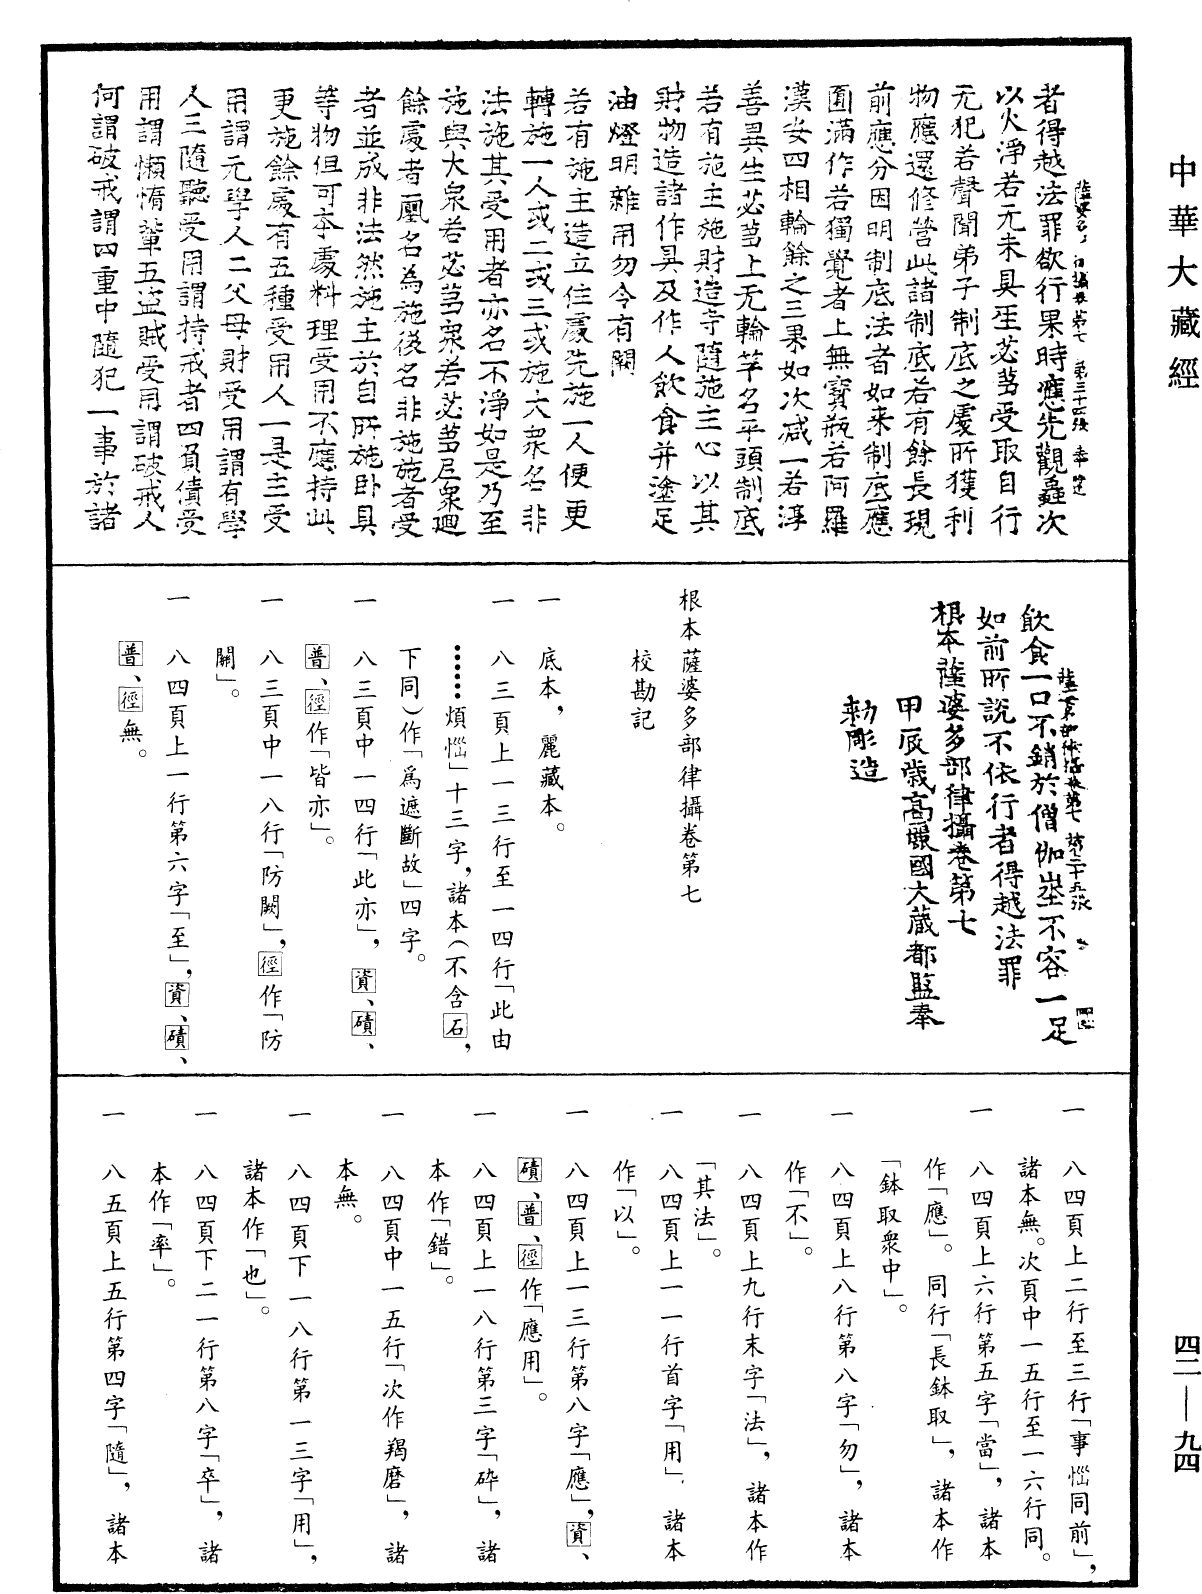 中華大藏經
者得越法罪欲行果時應先觀蟲次
以火淨若无未具坐苾芻受取自行
无犯若聲聞弟子制底之處所獲利
物應還修營此諸制底若有餘長現
前應分因明制底法者如来制底應
圓滿作若獨覺者上無寶瓶若阿羅
漢安四相輪餘之三果如次减一若淳
善異生苾芻上无輪竿名平頭制底
若有施主施財造寺隨施主心以其
財物造諸作具及作人飲食并塗足
油燈明雜用勿令有闕
若有施主造立住處先施一人便更
轉施一人或二或三或施大衆名非
法施其受用者亦名不淨如是乃至
施與大衆若苾芻衆若苾芻尼衆迴
餘處者凰名為施後名非施施者受
者並成非法然施主於自所施卧具
等物但可本處料理受用不應持此
更施餘處有五種受用人一是主受
用謂无學人二父母財受用謂有學
人三隨聽受用謂持戒者四負債受
用謂懶惰輩五盜賊受用謂破戒人
何謂破戒謂四重中隨犯一事於諸
飲食一口不銷於僧伽坐不容一足
如前所說不依行者得越法罪
根本薩婆多部律攝卷第七
甲辰歲高麗國大藏都監奉
勑彫造
根本薩婆多部律攝卷第七
校勘記
一　底本，麗藏本。
一　八三頁上一三行至一四行「此由
……煩惱」十三字，諸本（不含石，
下同）作「爲遮斷故」四字。
一　八三頁中一四行「此亦」，資、磧、
普、徑作「皆亦」。
一　八三頁中一八行「防闕」，徑作「防
關」。
一　八四頁上一行第六字「至」，資、磧、
普、徑無。
一　八四頁上二行至三行「事惱同前」，
諸本無。次頁中一五行至一六行同。
一　八四頁上六行第五字「當」，諸本
作「應」。同行「長鉢取」，諸本作
「鉢取衆中」。
一　八四頁上八行第八字「勿」，諸本
作「不」。
一　八四頁上九行末字「法」，諸本作
「其法」。
一　八四頁上一一行首字「用」，諸本
作「以」。
一　八四頁上一三行第八字「應」，資、
磧、普、徑作「應用」。
一　八四頁上一八行第三字「砕」，諸
本作「錯」。
一　八四頁中一五行「次作羯磨」，諸
本無。
一　八四頁下一八行第一三字「用」，
諸本作「也」。
一　八四頁下二一行第八字「卒」，諸
本作「率」。
一　八五頁上五行第四字「隨」，諸本
四二—九四